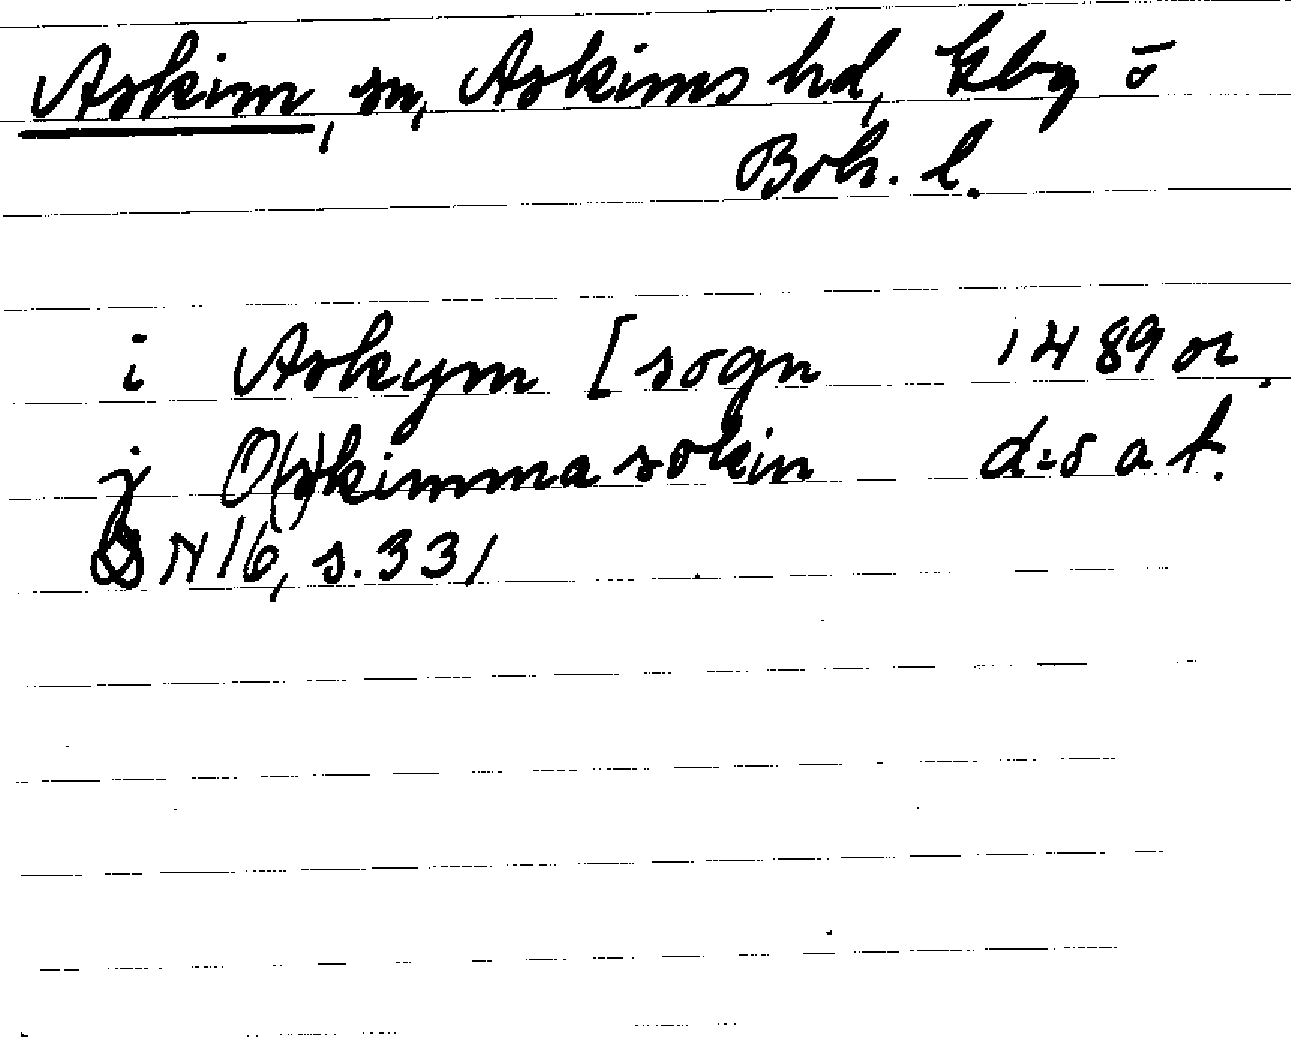 Askim, sn, Askims hd, Gbg o
Boh. l.
i Askym [sogn 1489 or.
j O(s)kimma sokin d:o a t.
DN 16, s. 331